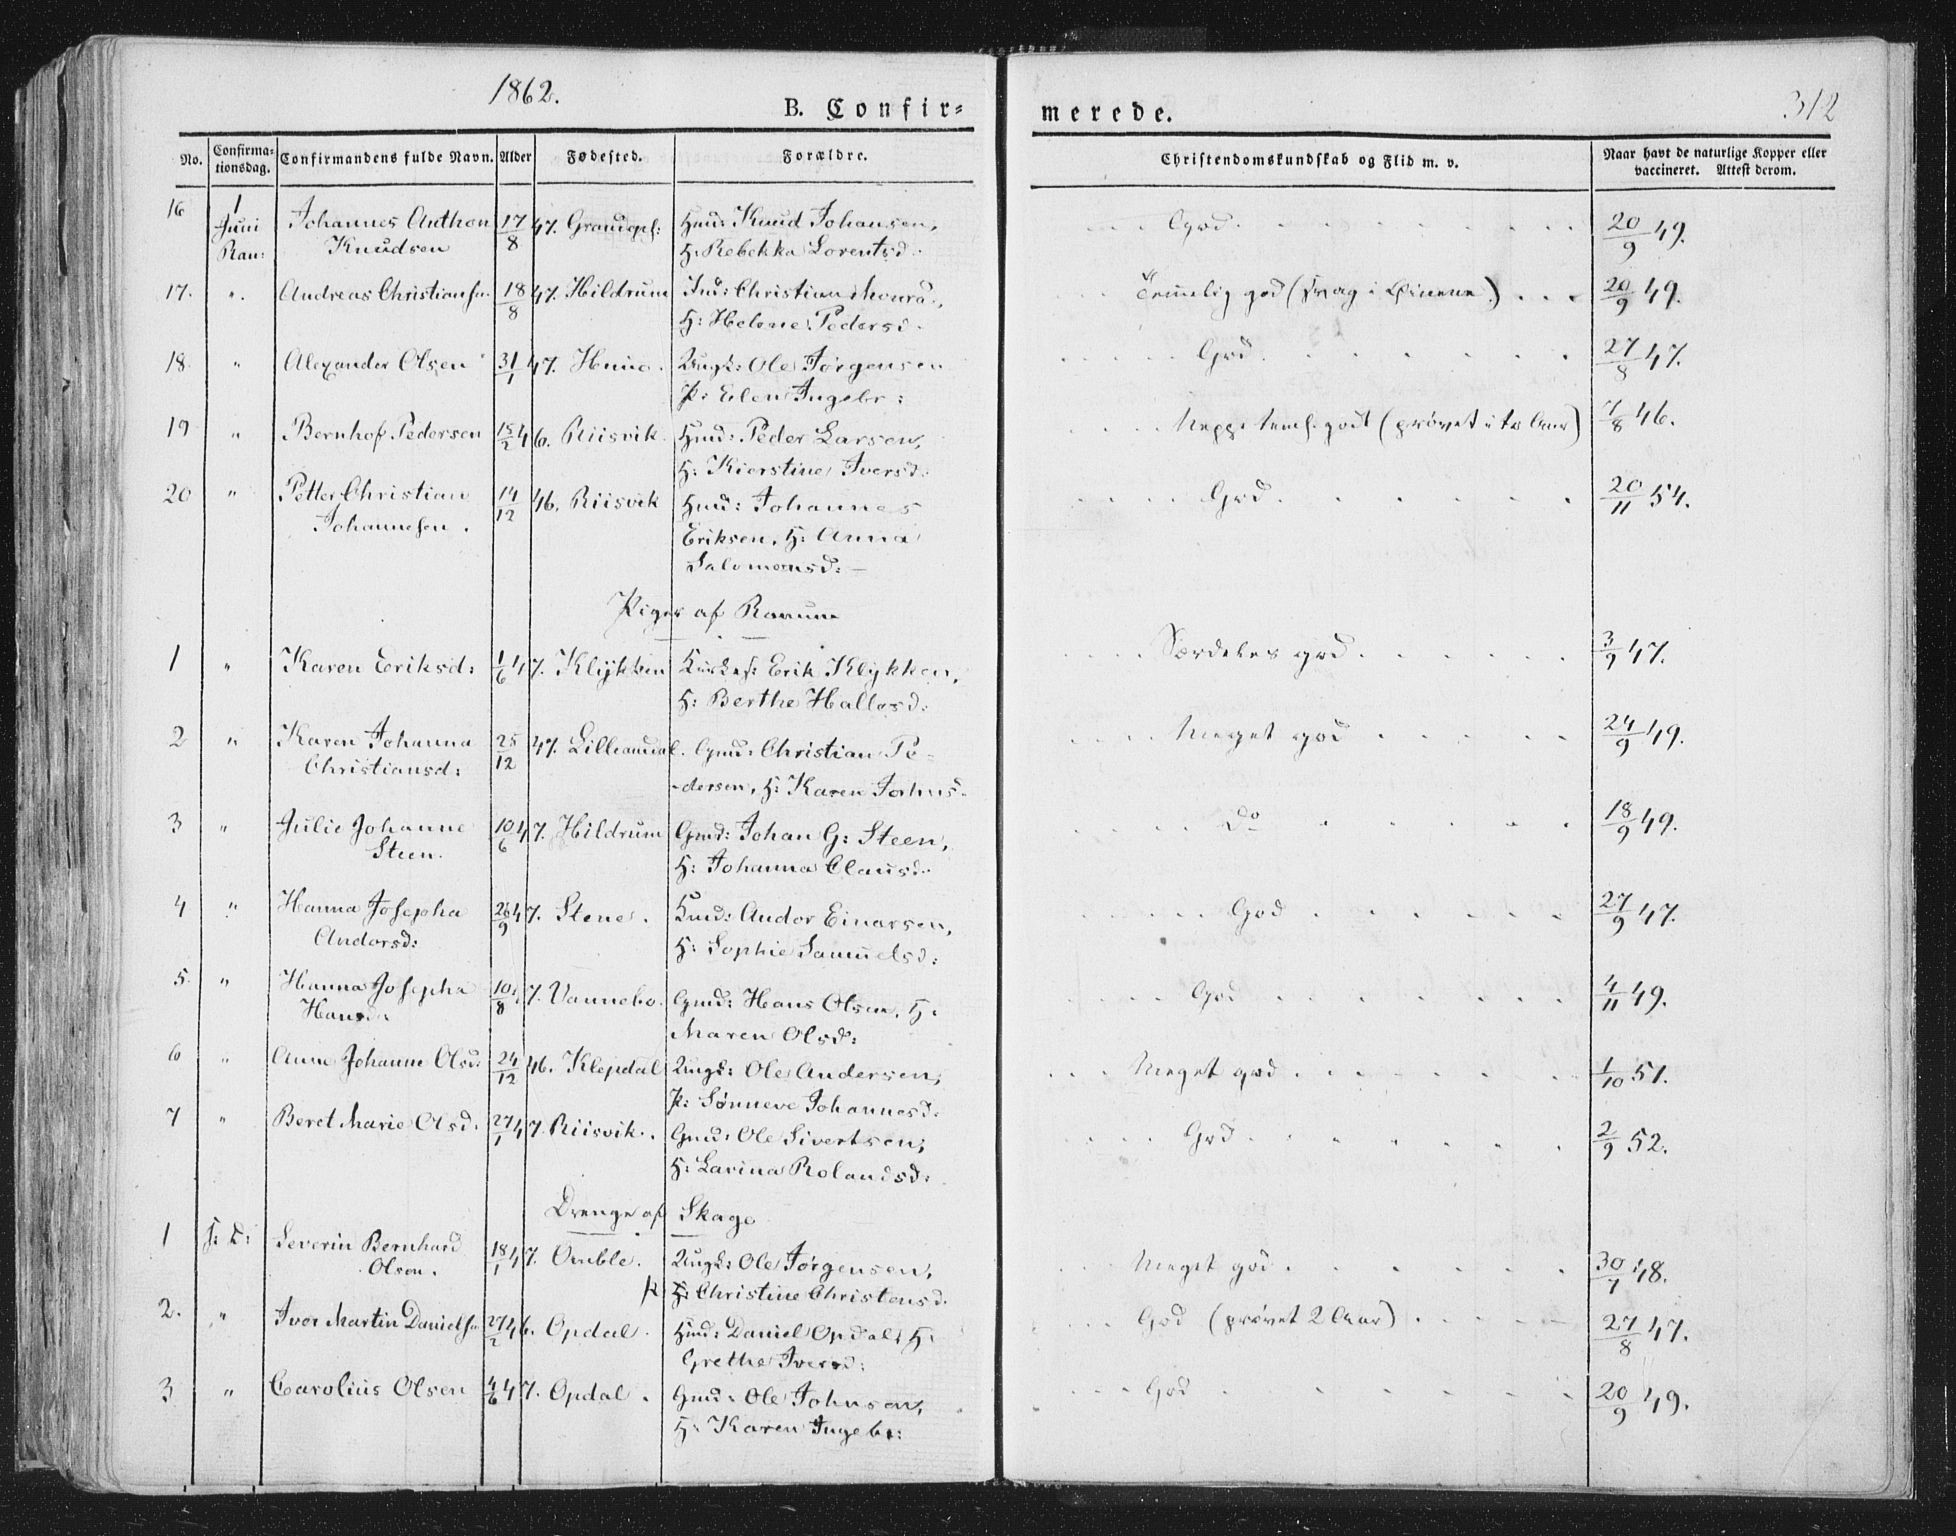 1862.
B. Confir=
merede.
312
No. Confirma= tionsdag. Confirmandens fulde Navn. Alder Fødested. Forældre. Christendomskundskab og Flid m. v. Naar havt de naturlige Kopper eller vaccineret. Attest derom.
16 1 Juni Ran: Johannes Anthon 17/8 47. Hmd: Knud Johansen, God. 20/9 49.
Knudsen H: Rebekka Lorentsd.
17. ". Andreas Christiansn. 18/8 47. Hildrum Ind: Christian Temmelig god (svag i Øinene.) 20/9 49.
H: Helene Pedersd.
18. " Alexander Olsen 31/1 47. Ungk: Ole Jørgensen God. 27/8 47.
P: Elen Ingebr:
19 " Bernhof Pedersen 15/2 46. Riisvik. Hmd: Peder Larsen, Neppe teml. godt (prøvet i to Aar) 7/8 46.
H: Kierstine Iversd:
20 " Petter Christian 14/12 46. Riisvik Hmd: Johannes God. 20/11 54.
Johannesen. Eriksen, H: Anna
Salomonsd:
Piger af Ranum
1 " Karen Eriksd: 1/6 47. Klykken Erik Klykken, Særdeles god. 3/9 47.
H: Berthe Hallesd:
2 " Karen Johanna 25/12 47. Lilleamdal. Gmd: Christian Pe- Meget god 24/9 49.
Christiansd: -dersen, H: Karen
3 " Julie Johanne 10/6 47. Hildrum Gmd: Johan G: Steen, Do 18/9 49.
Steen. H: Johanna Clausd.
4 " Hanna Josepha 26/9 47. Stene. Andor Einarsen, God 27/9 47.
Andorsd: H: Sophie Samuelsd:
5. " Hanna Josepha 10/8 47. Vannebo. Gmd: Hans Olsen, H: God 4/11 49.
Hansd: Maren Olsd:
6 " Anne Johanne Olsd: 24/12 46. Klepdal Ungk: Ole Andersen, Meget god. 1/10 51.
P: Sønneve Johannesd:
7 " Beret Marie Olsd. 27/1 47. Riisvik. Gmd: Ole Sivertsen, God 2/9 52.
H: Larina Rolandsd:
Drenge af Skage
1 s: D: Severin Bernhard 18/1 47. Amble. Ungk: Ole Jørgensen, Meget god. 30/7 48.
Olsen. P: Christine Christensd.
2. " Iver Martin Danielsn 27/2 46. Opdal. Hmd: Daniel Opdal, H: God (prøvet 2 Aar) 27/8 47.
Grethe Iversd:
3 " Carolius Olsen 4/6 47. Opdal. Gmd: Ole Johnsen, God 20/9 49.
H: Karen Ingebr: